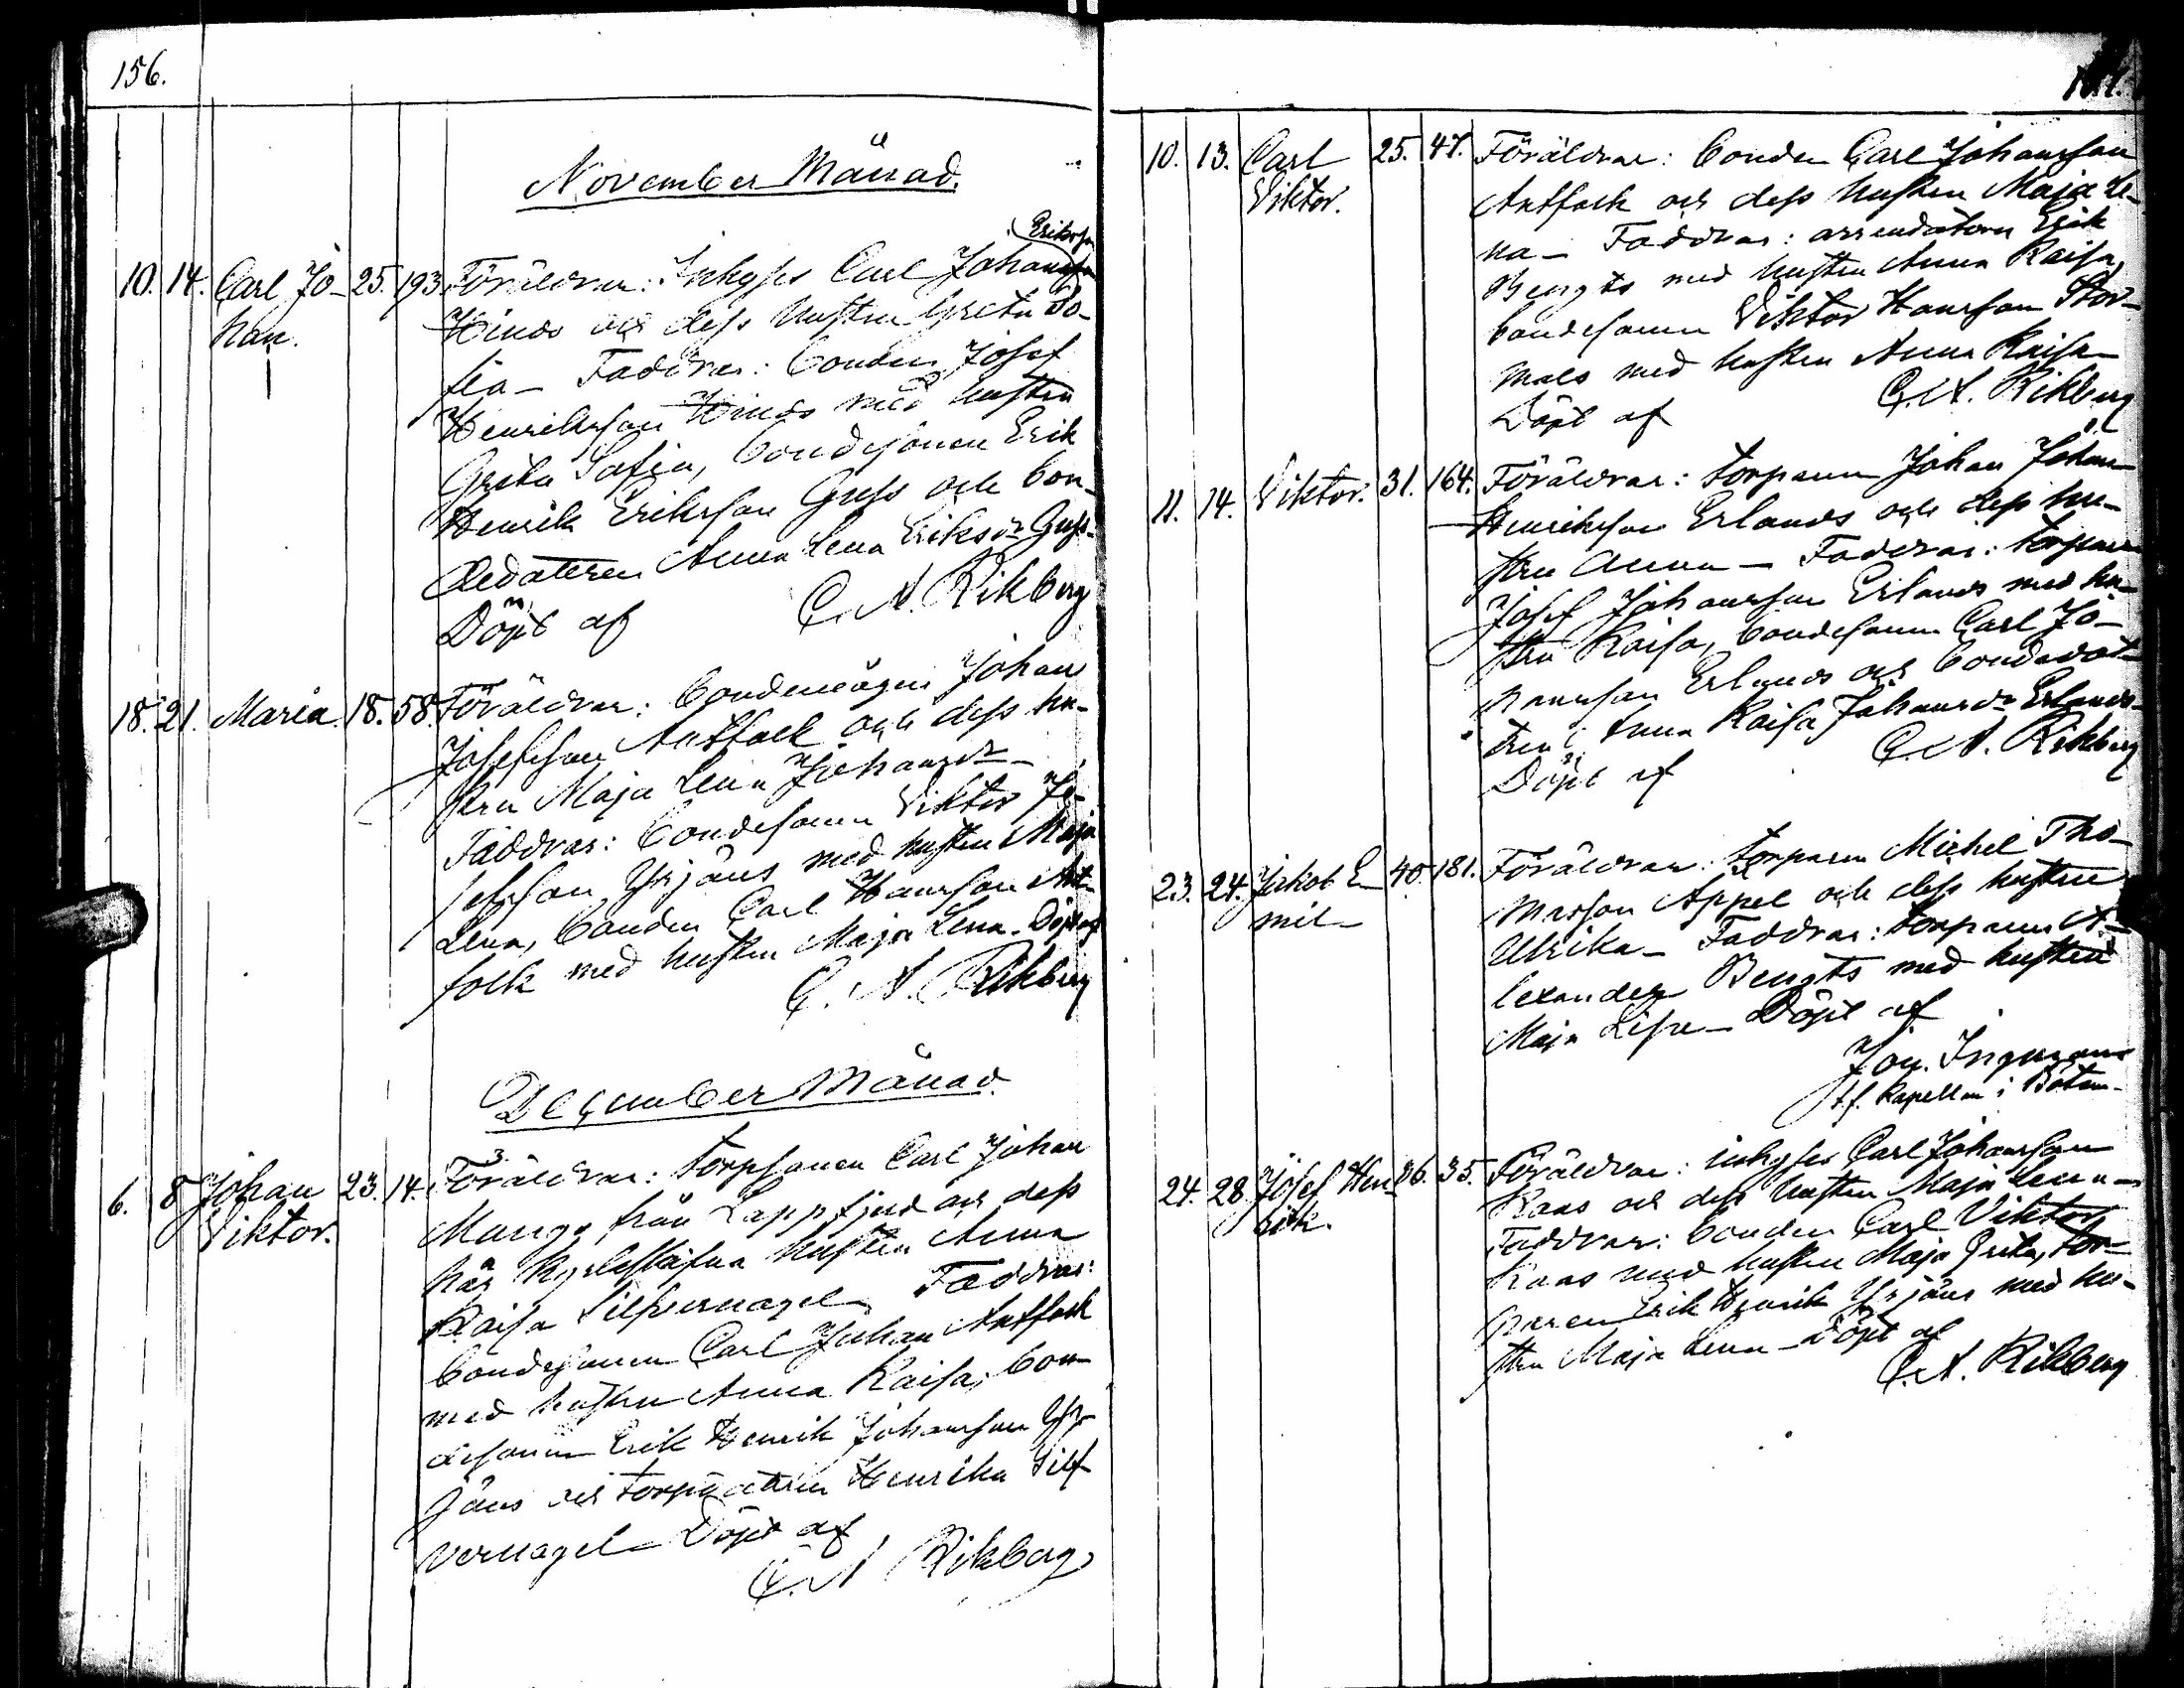 156.
November Månad.
Eriksson
10. 14. Carl Jo- 25. 193. Föräldrar: Inhyses Carl Johansson
han. Hinds och dess hustru Greta So-
fia - Faddrar: bonden Josef
Henriksson Hinds med hustru
Greta Sofia, bondesonen Erik
Henrik Eriksson Guss och bon-
dedotteren Anna Lena Eriksdr Guss.
Döpt af C. A. Rikberg
18. 21. Maria. 18. 58. Föräldrar: bondemågen Johan
Josefsson Antfolk och dess hu-
stru Maja Lena Johansdr -
Faddrar: bondesonen Viktor Jo-
sefsson Yrjäns med hustru Maja
Lena, bonden Carl Hansson Ant-
folk med hustru Maja Lena. Döpt af
C. A. Rikberg
December Månad.
6. 8. Johan 23. 14. Föräldrar: torpsonen Carl Johan
Viktor. Mangs från Lappfjerd och dess
här kyrkskrifna hustru Anna
Kaisa Silfvernagel Faddrar:
bondesonen Carl Johan Antfolk
med hustru Anna Kaisa, bon-
desonen Erik Henrik Johansson Yr-
jäns och torpdottren Henrika Silf-
vernagel - Döpt af
C. A. Rikberg
10. 13. Carl 25. 47. Föräldrar: bonden Carl Johansson
Viktor. Antfolk och dess hustru Maja Le-
na - Faddrar: arrendatorn Erik
Bengts med hustru Anna Kaisa,
bondesonen Viktor Hansson Stor-
mols med hustru Anna Kaisa -
Döpt af C. A. Rikberg
11. 14. Viktor. 31. 164. Föräldrar: torparen Johan Johan
Henriksson Erlands och dess hu-
stru Anna - Faddrar: torparen
Josef Johansson Erlands med hu-
stru Kaisa, bondesonen Carl Jo-
hansson Erlands och bondedot-
tren Anna Kaisa Johansdr Erlands-
Döpt af C. A. Rikberg
23. 24. Jakob E- 40. 181. Föräldrar: torparen Michel Tho-
mil - masson Appel och dess hustru
Ulrika - Faddrar: torparen A-
lexander Bengts med hustru
Maja Lisa - Döpt af
Joh. Ingman
t.f. kapellan i Böt
24. 28. Josef Hen- 26. 35. Föräldrar: inhyses Carl Johansson
rik. Kaas och dess hustru Maja Lena -
Faddrar: bonden Carl Viktor
Kaas med hustru Maja Greta, tor-
paren Erik Henrik Yrjäns med hu-
stru Maja Lena - Döpt af
C. A. Rikberg